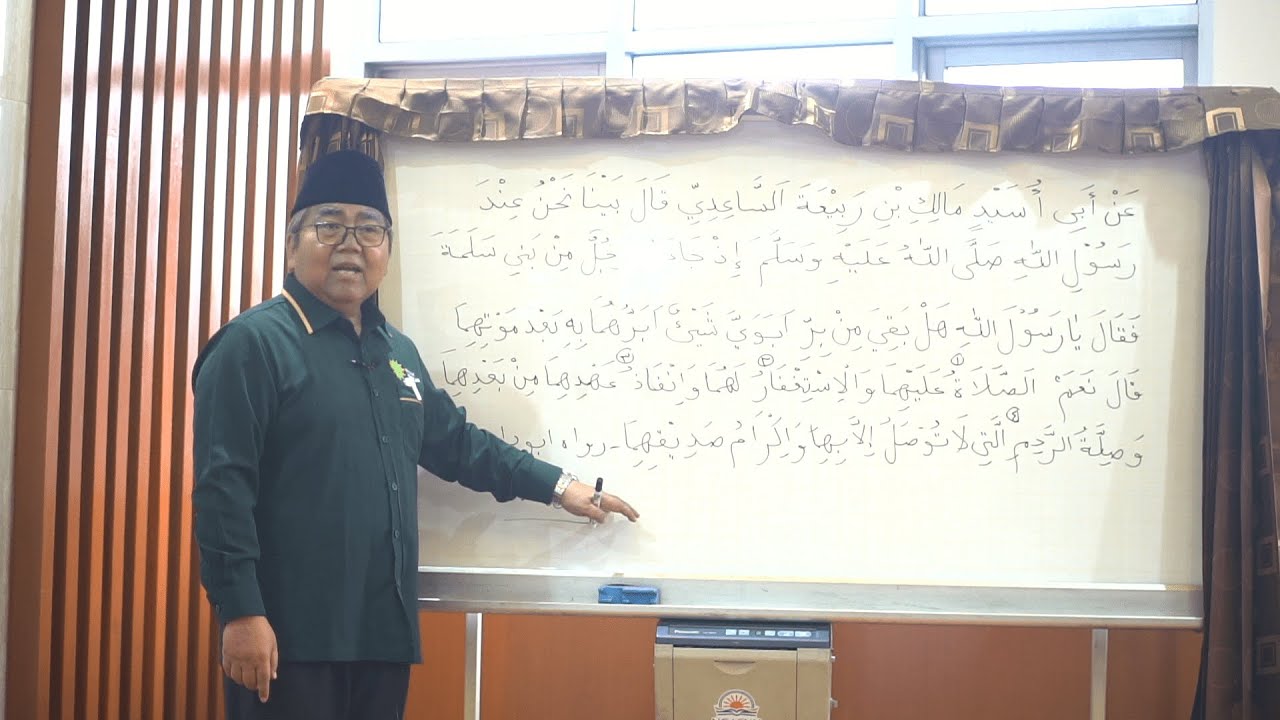 عَنْ أَبِى أُسَيْدٍ مَالِكِ بْنِ رَبِيْعَةَ السَّاعِدِيّ قَالَ بَيْنَا نَحْنُ عِنْدَ
رَسُوْلِ اللّٰهِ صَلَّى اللّٰهُ عَلَيْهِ وَسَلَّمَ إِذْ جَاءَ جُلٌ مِنْ بَنِي سَلَمَةَ
فَقَالَ يَا رَسُوْلَ اللّٰهِ هَلْ بَقِيَ مِنْ بِرِّ اَبَوَيَّ شَيْئٌ اَبَرُّهُمَا بِهِ بَعْدَ مَوْتِهِمَا
قَالَ نَعَمْ الصَّلَاةُ ① عَلَيْهِمَا وَالْاِسْتِغْفَارُ ② لَهُمَا وَاِنْفَاذُ ③ عَهْدِهِمَا مِنْ بَعْدِهِمَا
وَصِلَةُ الرَّحِمِ ④ الَّتِي لَا تُوْصَلُ اِلَّا بِهِمَا وَاِكْرَامُ صَدِيْقِهِمَا - رواه ابو
Panasonic